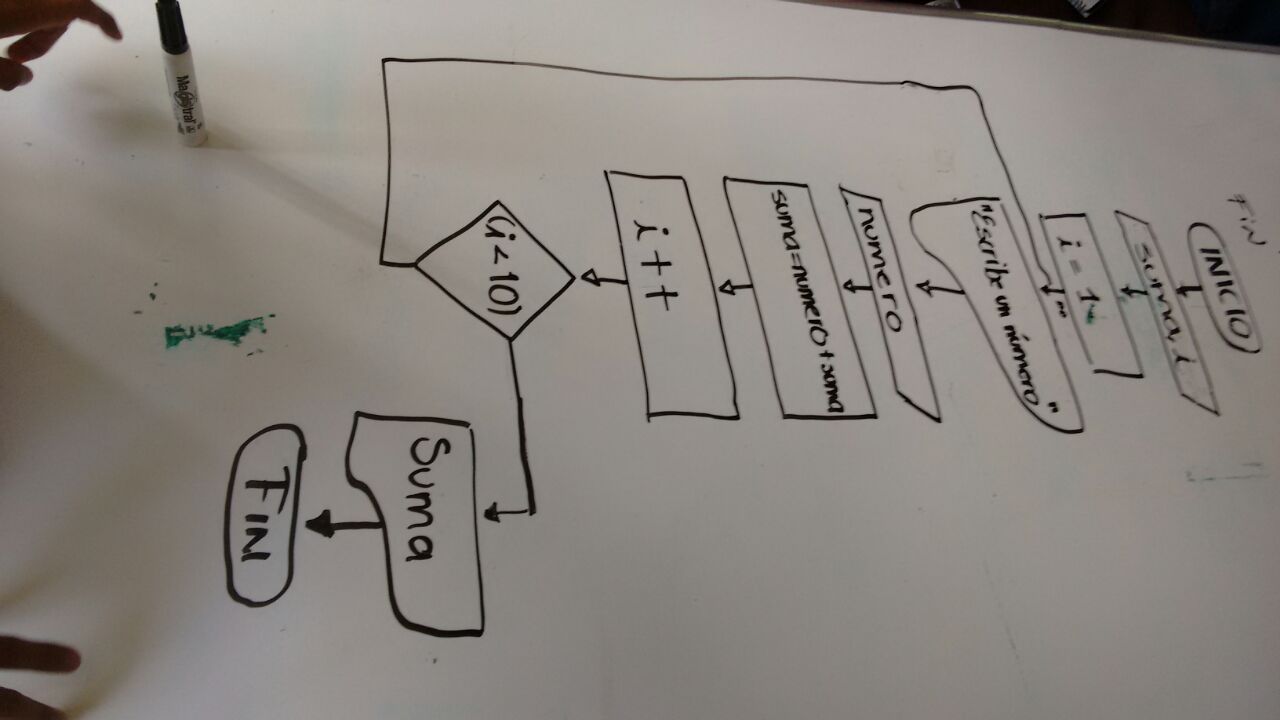 FIN
INICIO
suma, i
i = 1
"Escribe un número"
numero
suma=numero+suma
i++
(i<10)
Suma
FIN
Magistral